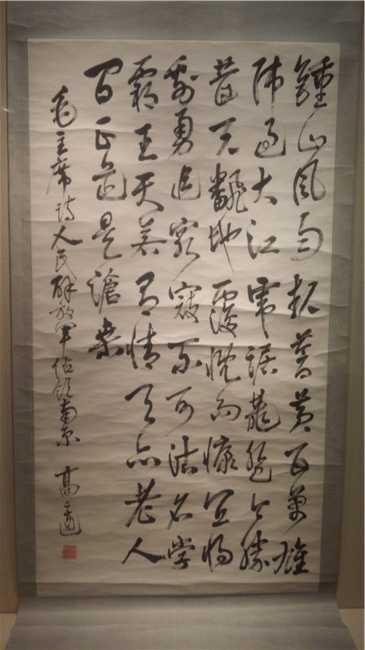 鍾山風雨起蒼黄百萬雄
師過大江虎踞龍盤今勝
昔天翻地覆慨而慷宜将
剩勇追窮寇不可沽名学
霸王天若有情天亦老人
間正道是滄桑
毛主席詩人民解放軍佔領南京 高二适